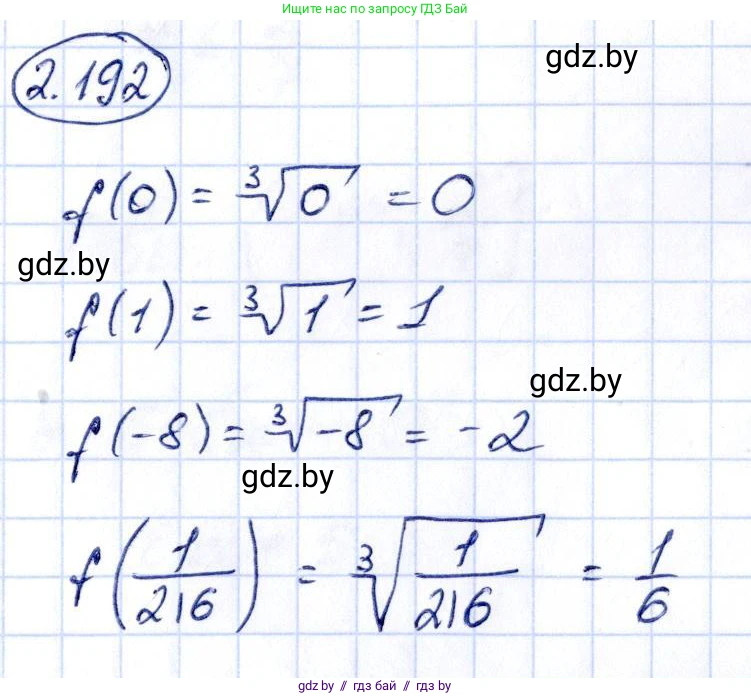 Ищите нас по запросу ГДЗ Бай
2.192
gdz.by
f(0) = ∛0 = 0
gdz.by
f(1) = ∛1 = 1
gdz.by
f(-8) = ∛-8 = -2
gdz.by
f(1/216) = ∛(1/216) = 1/6
gdz.by // гдз бай // gdz.by